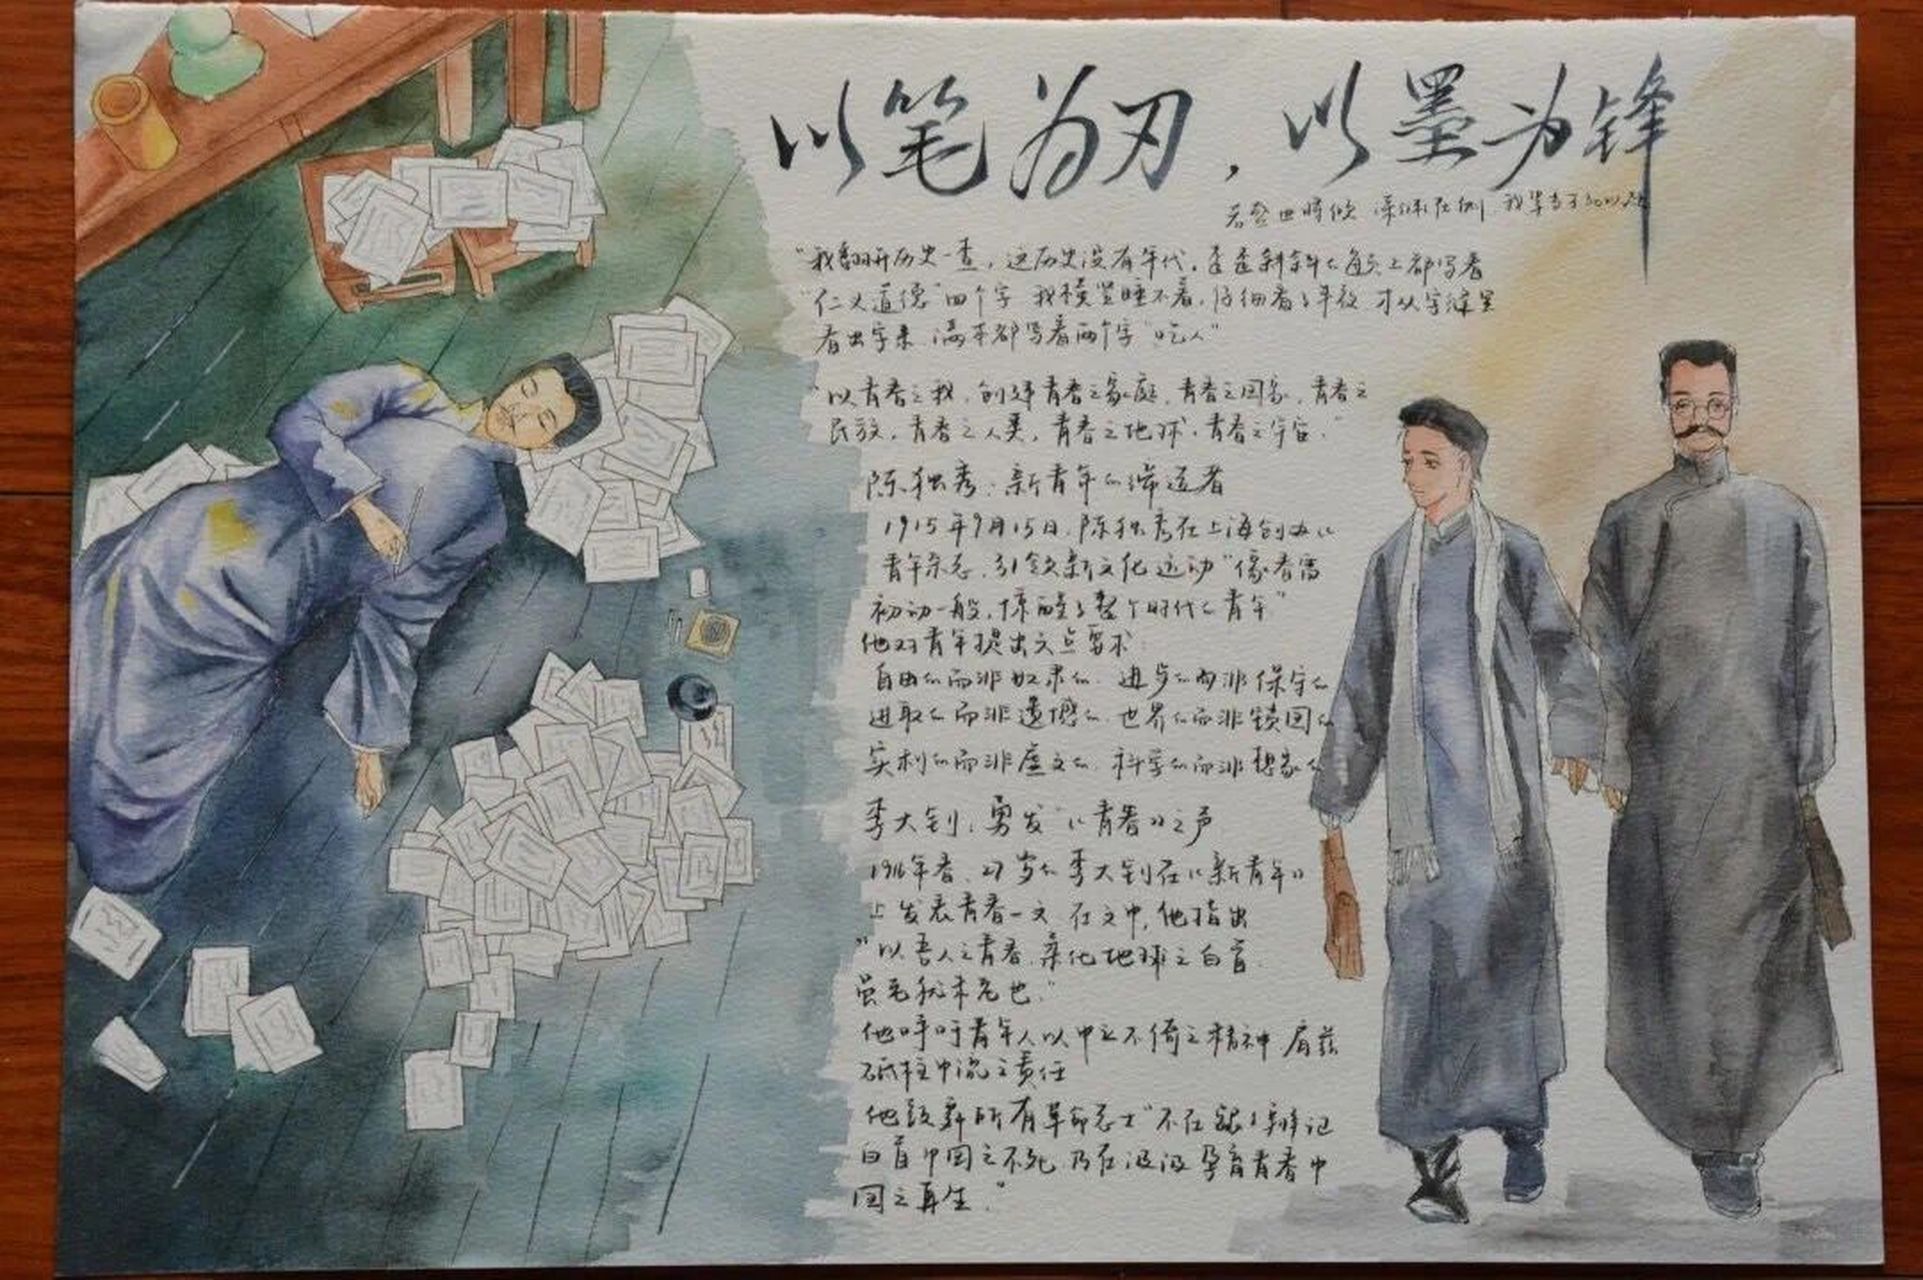 以笔为刃，以墨为锋
"我翻开历史一查，这历史没有年代，歪歪斜斜的每页上都写着
"仁义道德"四个字 我横竖睡不着，仔细看了半夜 才从字缝里
看出字来 满本都写着两个字"吃人"
"以青春之我，创建青春之家庭，青春之国家，青春之
民族，青春之人类，青春之地球，青春之宇宙。"
陈独秀：新青年的缔造者
1915年9月15日，陈独秀在上海创办《
青年杂志，引领新文化运动"像春雷
初动一般，惊醒了整个时代的青年"
他对青年提出六点要求：
自由的而非奴隶的，进步的而非保守的
进取的而非退隐的，世界的而非锁国的
实利的而非虚文的，科学的而非想象的
李大钊：勇发"《青春》之声
1916年春，27岁的李大钊在《新青年》
上发表青春一文 在文中，他指出
"以吾人之青春，柔化地球之白首
虽老犹未老也。"
他呼吁青年人以中立不倚之精神 肩兹
砥柱中流之责任
他鼓舞所有革命志士"不在龈龈辩记
白首中国之不死，乃在汲汲孕育青春中
国之再生。"